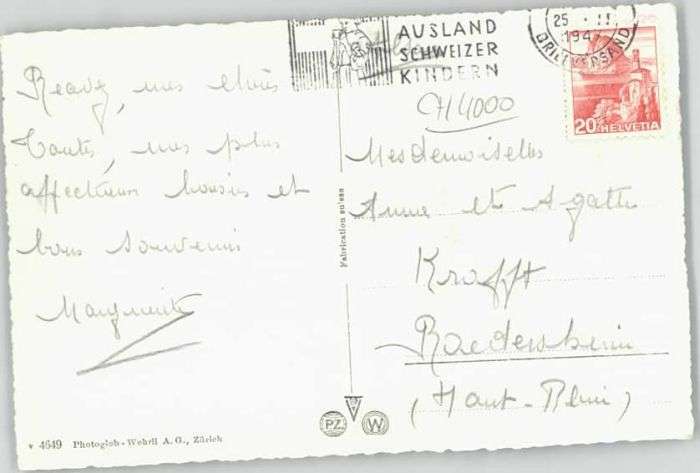 AUSLAND
SCHWEIZER
KINDERN
25. II.
194
BRIEFVERSAND
20 HELVETIA
CH 4000
Recevez, mes chères
Toutes, mes plus
affectueux baisers et
bons souvenirs
Marguerite
Mesdemoiselles
Anne et Agathe
Krafft
Raedersheim
(Haut-Rhin)
Fabrication suisse
PZ W
v 4649 Photoglob-Wehrli A.G., Zürich